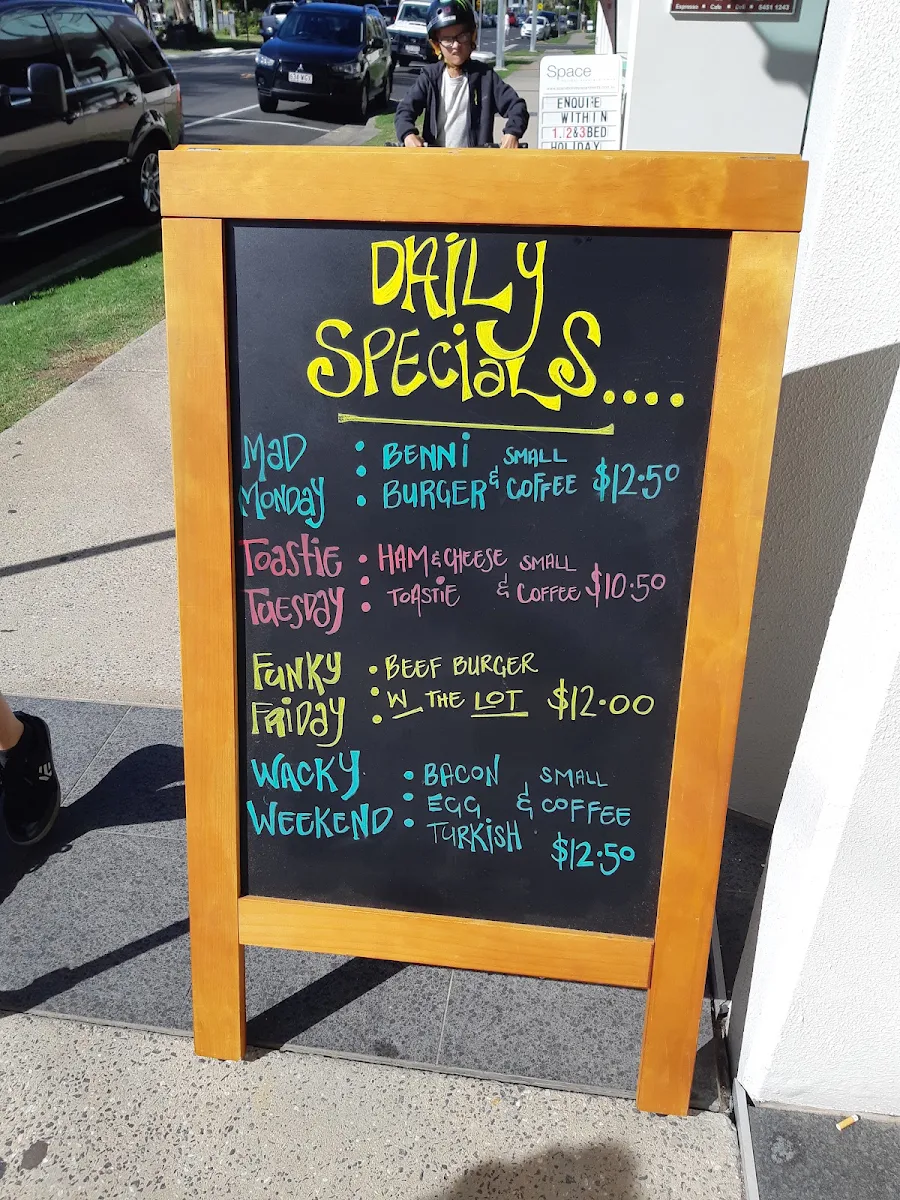 Espresso • Cafe • Deli • 5451 1243
Space
ENQUIRE
WITHIN
1, 2&3BED
HOLIDAY
DAiLY
SPECiaLS....
MaD : BENNi SMALL
MONDay BURGER & COFFEE $12.50
Toastie : HAM & CHEESE SMALL
TUESDAY TOAStiE & COFFEE $10.50
FUNKY : BEEF BURGER
FRiDAY W THE LOT $12.00
WACKY : BACON SMALL
WEEKEND EGG & COFFEE
TURKiSH $12.50